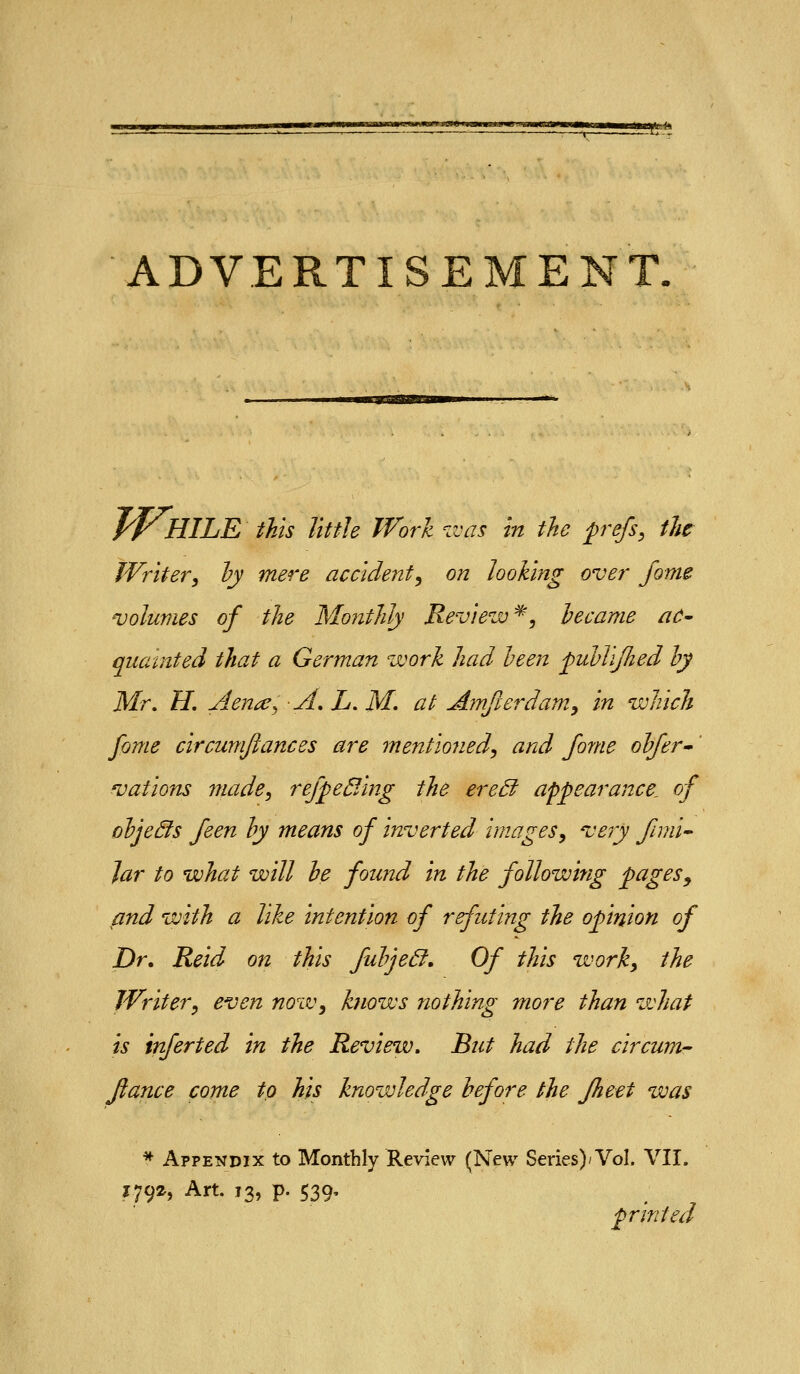 ADVERTISEMENT.
WHILE this little Work was in the preſs, the
Writer, by mere accident, on looking over ſome
volumes of the Monthly Review*, became ac-
quainted that a German work had been publiſhed by
Mr. H. Aenæ, A. L. M. at Amſterdam, in which
ſome circumſtances are mentioned, and ſome obſer-
vations made, reſpecting the erect appearance of
objects ſeen by means of inverted images, very ſimi-
lar to what will be found in the following pages,
and with a like intention of refuting the opinion of
Dr. Reid on this ſubject. Of this work, the
Writer, even now, knows nothing more than what
is inſerted in the Review. But had the circum-
ſtance come to his knowledge before the ſheet was
* APPENDIX to Monthly Review (New Series) Vol. VII.
1792, Art. 13, p. 539.
printed